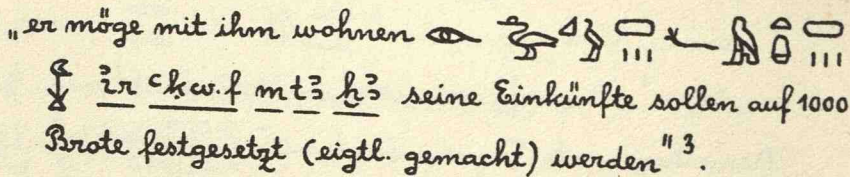 „er möge mit ihm wohnen
ỉr ꜥḳw.f m tꜣ ḫꜣ seine Einkünfte sollen auf 1000
Brote festgesetzt (eigtl. gemacht) werden" ³.